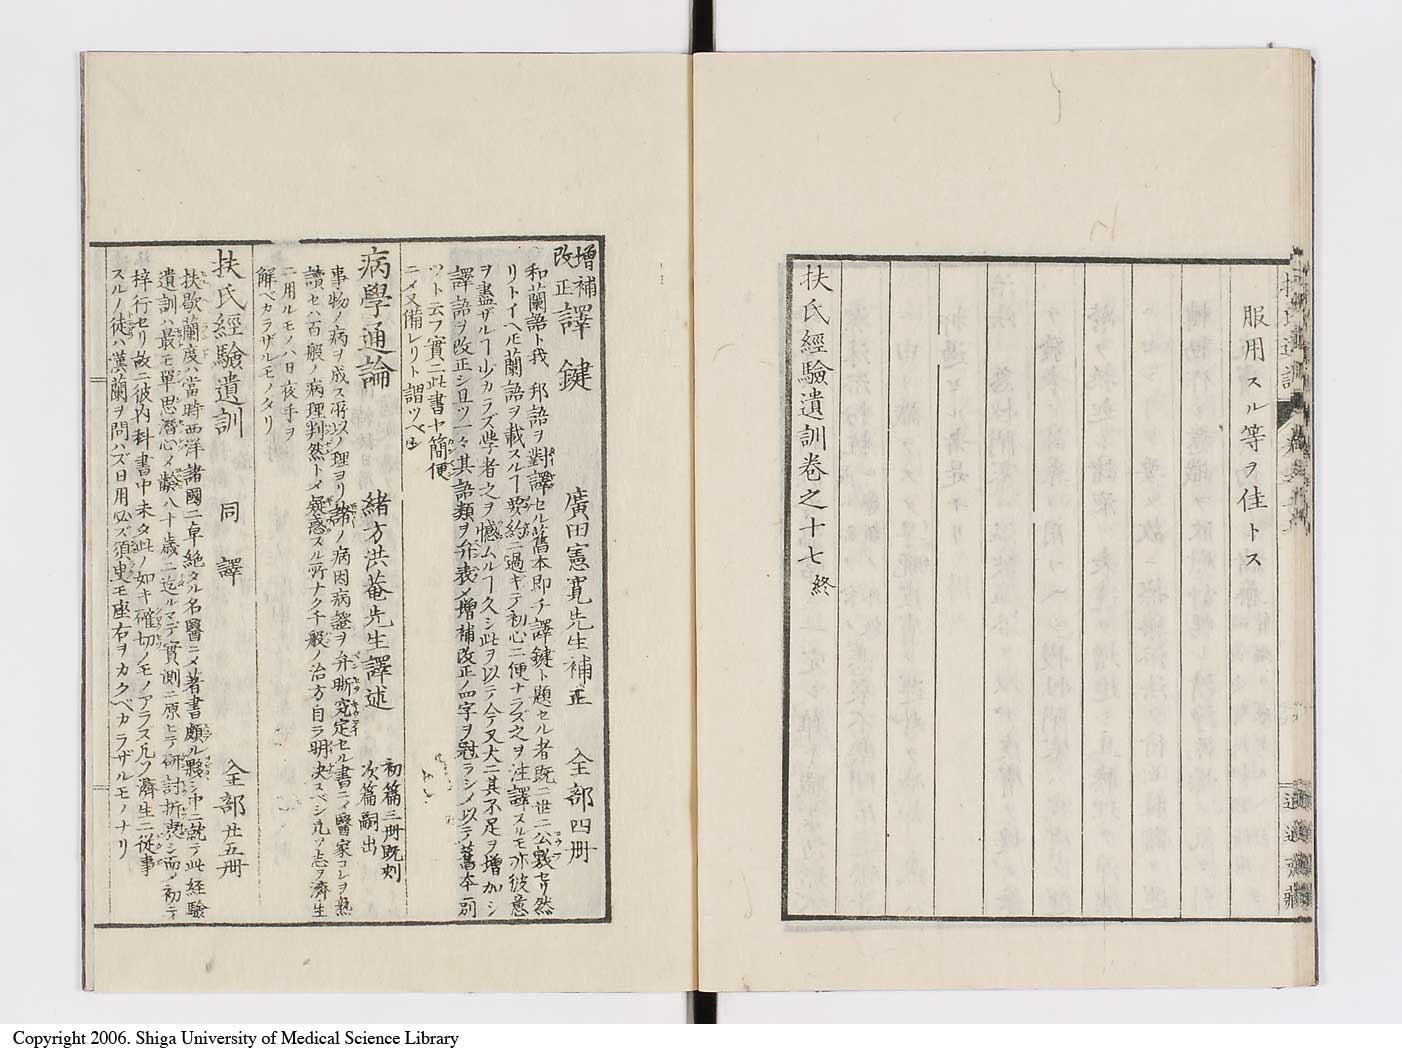 服用スル等ヲ佳トス
扶氏經驗遺訓卷之十七終
適適齋藏
增補改正 譯鍵 廣田憲寬先生補正 全部四册
和蘭語ト我 邦語ヲ對譯セル舊本即チ譯鍵ト題セル者既ニ世ニ公裁セリ然
リトイヘ𪜈蘭語ヲ載スルヿ要約ニ過ギテ初心ニ便ナラズ之ヲ注譯スルモ亦彼意
ヲ盡ザルヿ少カラズ學者之ヲ憾ムルヿ久シ此ヲ以テ今又大ニ其不足ヲ增加シ
譯語ヲ改正シ且ツ一々其語類ヲ弁表シメ增補改正ノ四字ヲ冠ラシメ以テ舊本ニ別
ツト云フ實ニ此書ヤ簡便
ニメ又備レリト謂ツベ
病學通論 緒方洪菴先生譯述 初篇三册既刻 次篇嗣出
事物ノ病ヲ成ス所以ノ理ヨリ諸ノ病因病證ヲ弁晣究定セル書ニメ醫家コレヲ熟
讀セハ百般ノ病理判然トメ疑惑スル所ナク千般ノ治方自ラ明決スベシ凡ソ志ヲ濟生
ニ用ルモノハ日夜手ヲ
解ベカラザルモノタリ
扶氏經驗遺訓 同譯 全部廿五册
扶歇蘭度ハ當時西洋諸國ニ卓絶タル名醫ニメ著書頗ル夥シ中ニ就テ此經驗
遺訓ハ最モ單思潛心メ齡八十歳ニ迄ルマデ實測ニ原ヒテ研討折衷シ而メ初テ
梓行セリ故ニ彼内科書中未タ此ノ如キ確切ノモノアラス凡ソ濟生ニ從事
スルノ徒ハ漢蘭ヲ問ハズ日用必ズ須臾モ座右ヲカクベカラザルモノナリ
Copyright 2006. Shiga University of Medical Science Library